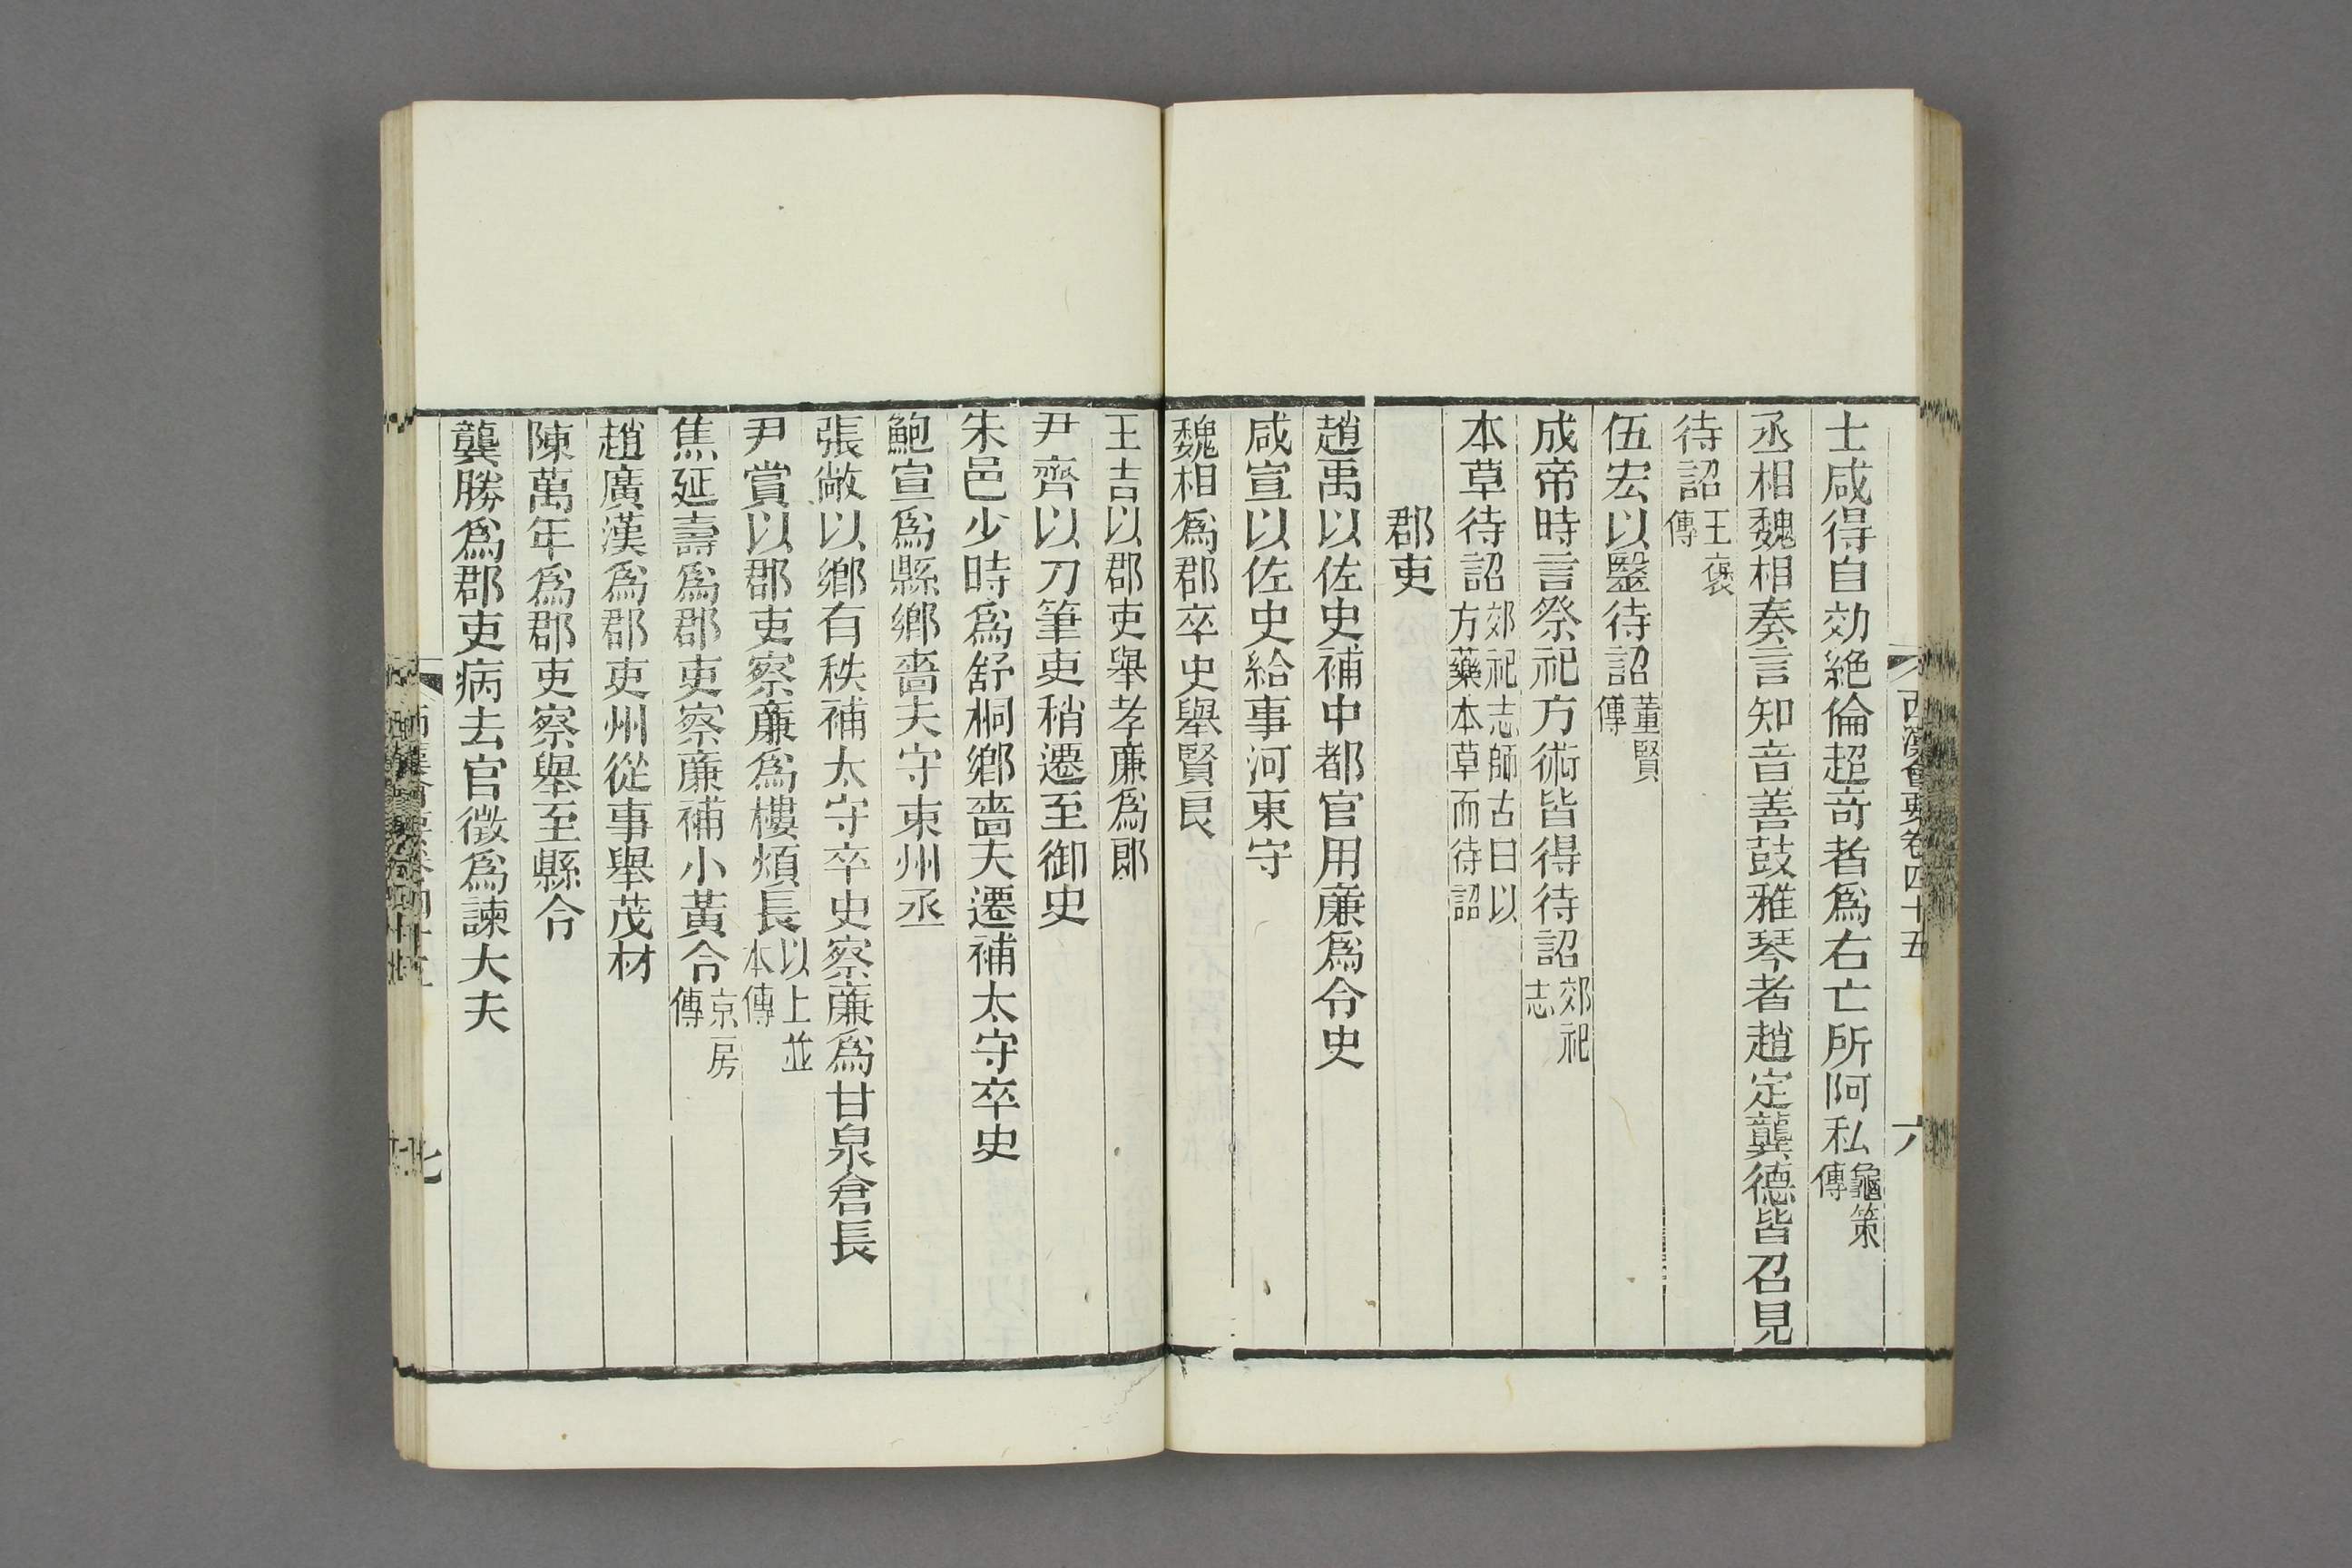 西漢會要卷四十五
六
士咸得自効絶倫超竒者爲右亡所阿私龜策傳
丞相魏相奏言知音善鼓雅琴者趙定龔德皆召見
待詔王褒傳
伍宏以毉待詔董賢傳
成帝時言祭祀方術皆得待詔郊祀志
本草待詔郊祀志師古曰以方藥本草而待詔
郡吏
趙禹以佐史補中都官用廉爲令史
咸宣以佐史給事河東守
魏相爲郡卒史舉賢良
王吉以郡吏舉孝廉爲郎
尹齊以刀筆吏稍遷至御史
朱邑少時爲舒桐鄉嗇夫遷補太守卒史
鮑宣爲縣鄉嗇夫守束州丞
張敞以鄉有秩補太守卒史察廉爲甘泉倉長
尹賞以郡吏察廉爲樓煩長以上並本傳
焦延壽爲郡吏察廉補小黃令京房傳
趙廣漢爲郡吏州從事舉茂材
陳萬年爲郡吏察舉至縣令
龔勝爲郡吏病去官徵爲諫大夫
七